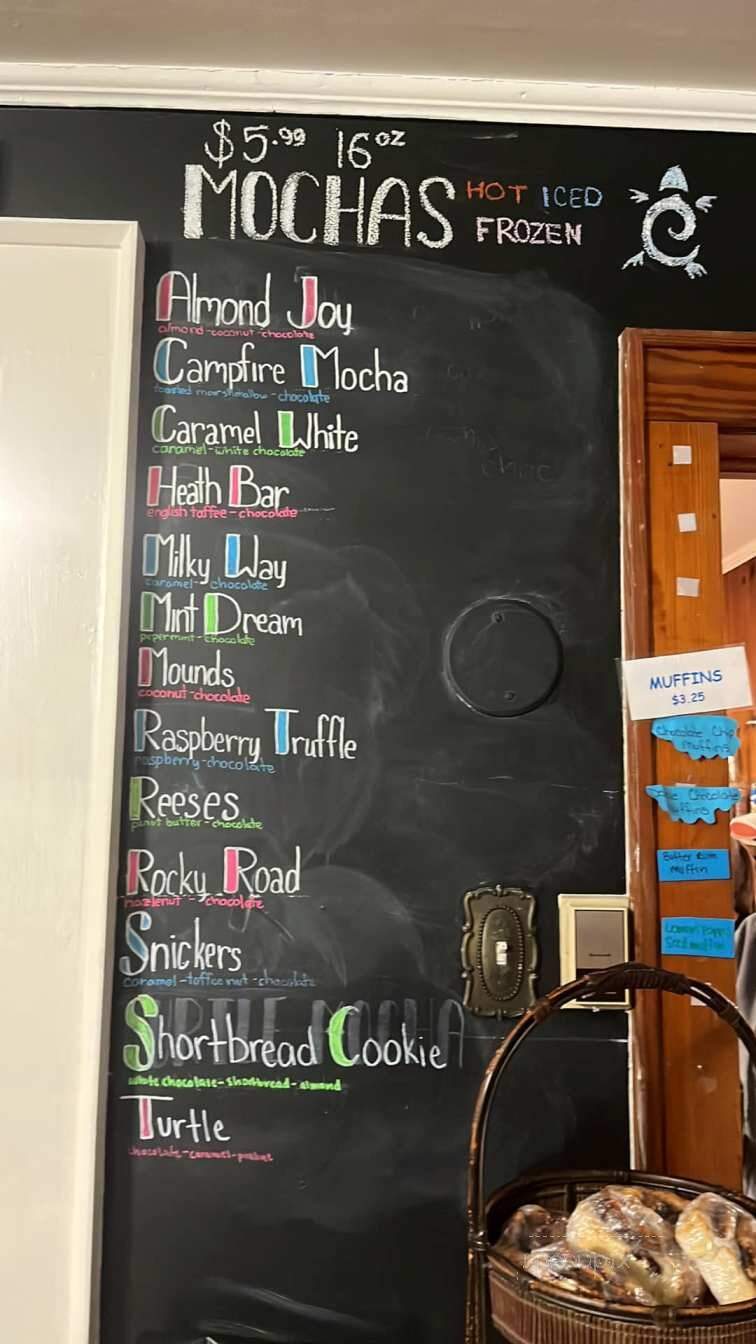 $5.99 16oz
MOCHAS HOT ICED
FROZEN
Almond Joy
almond-coconut-chocolate
Campfire Mocha
toasted marshmallow-chocolate
Caramel White
caramel-white chocolate
Heath Bar
english toffee-chocolate
Milky Way
caramel-chocolate
Mint Dream
peppermint-chocolate
Mounds
coconut-chocolate
Raspberry Truffle
raspberry-chocolate
Reeses
peanut butter-chocolate
Rocky Road
hazelenut-chocolate
Snickers
caramel-toffee nut-chocolate
TURTLE MOCHA
Shortbread Cookie
white chocolate-shortbread-almond
Turtle
chocolate-caramel-praline
MUFFINS
$3.25
Chocolate Chip
Muffins
Chocolate
Muffins
Butter Rum
Muffin
Lemon Poppy
Seed muffin